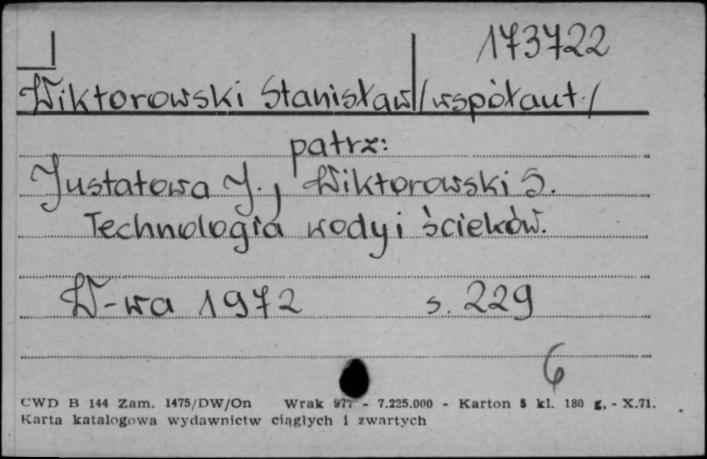 173722
Wiktorowski Stanisław /współaut./
patrz:
Justatowa J., Wiktorowski S.
Technologia wody i ścieków.
W-wa 1972 s. 229
6
CWD B 144 Zam. 1475/DW/On Wrak 977 - 7.225.000 - Karton 5 kl. 180 g. - X.71.
Karta katalogowa wydawnictw ciągłych i zwartych